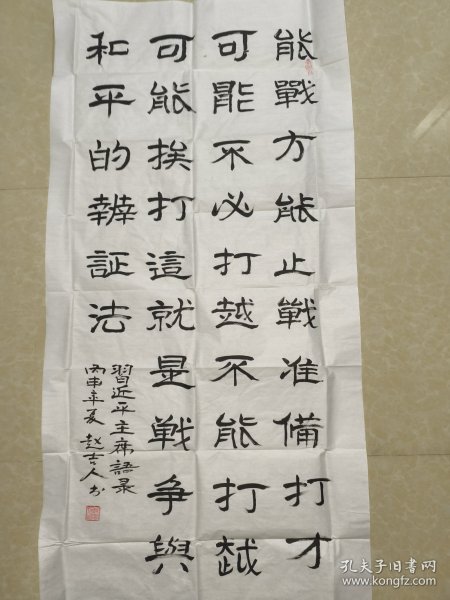 能戰方能止戰准備打才
可能不必打越不能打越
可能挨打這就是戰争與
和平的辨証法
習近平主席語录
丙申年夏 赵吉人书
孔夫子旧书网
www.kongfz.com